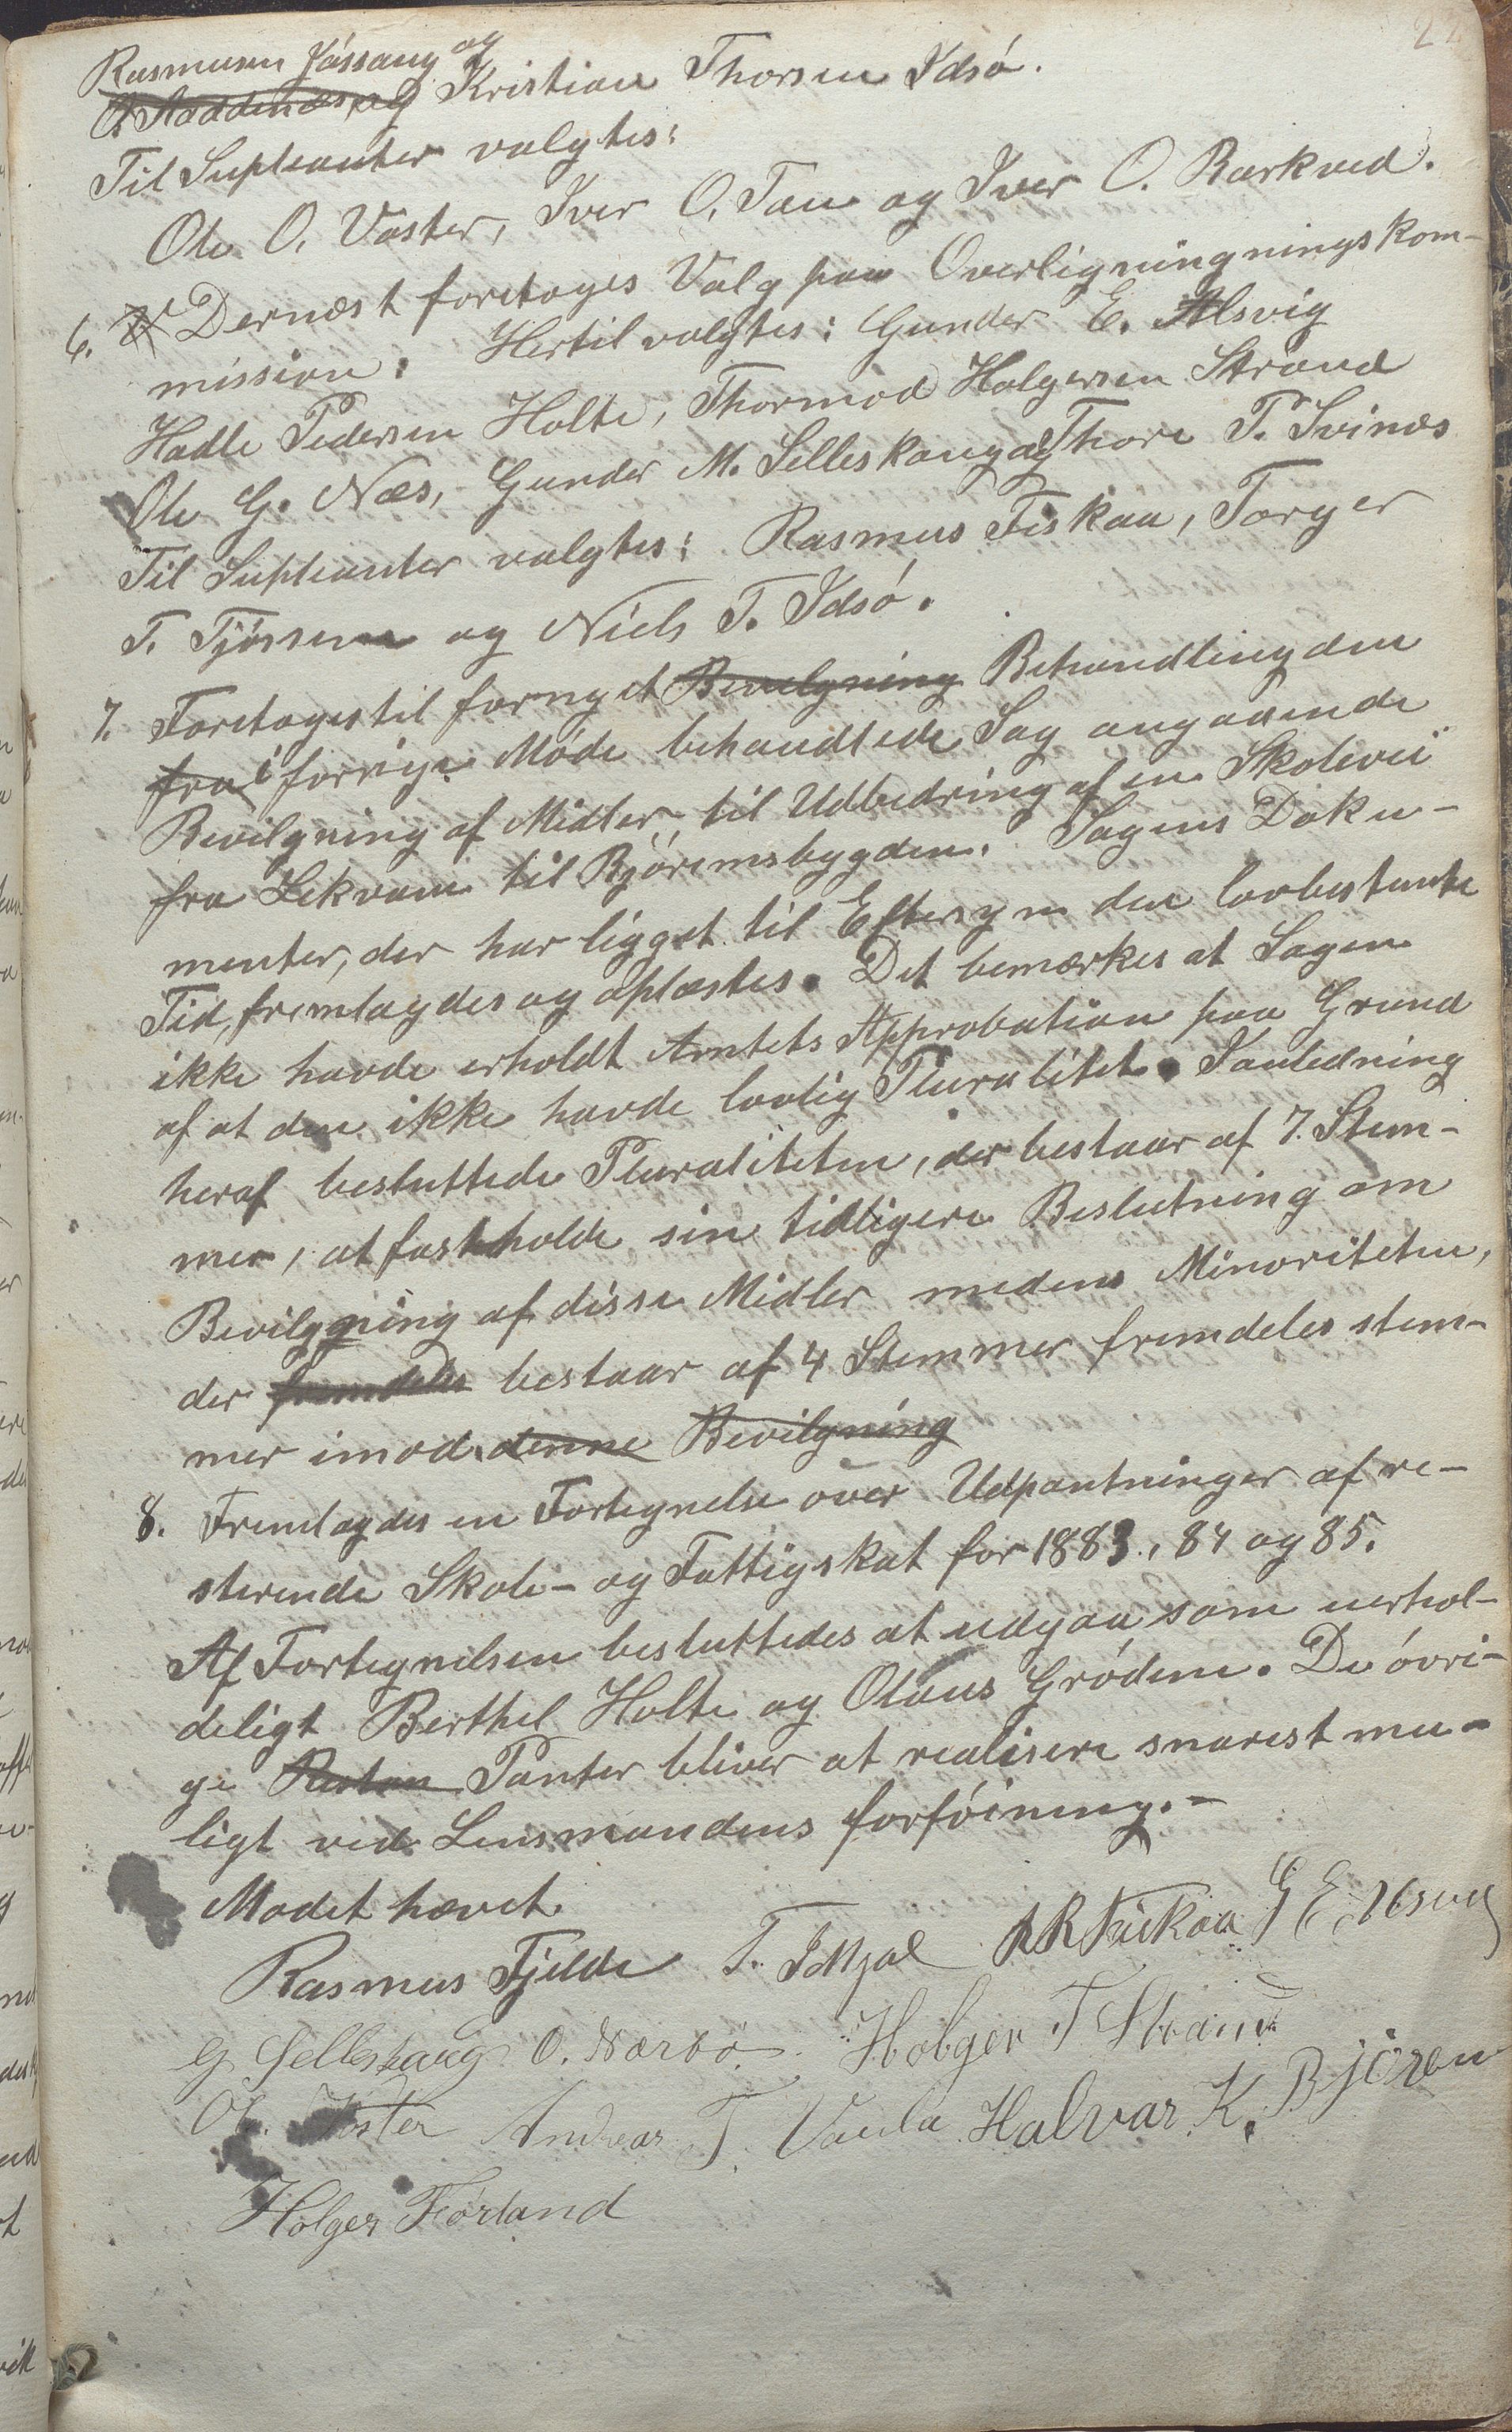 22
Rasmusen Jøssang og
Kristian Thorsen Idsø.
Til Supleanter valgtes:
Ole O. Voster, Iver O. Tau og Iver O. Barkved.
6. Dernæst foretoges Valg paa Overligningningskom-
mission. Hertil valgtes: Gunder E. Alsvig
Hadle Pedersen Holte, Thormod Holgersen Strand
Ole G. Næs, Gunder M. Selleskoug og Thore P. Svinæs
Til Supleanter valgtes: Rasmus Fiskaa, Torger
T. Tjøssem og Niels T. Idsø.
7. Foretoges til fornyet Bevilgning Behandling den
fra i forrige Møde behandlede Sag angaaende
Bevilgning af Midler til Udbedring af en Skolevei
fra Lekvam til Bjøremsbygden. Sagens Doku-
menter, der har ligget til Eftersyn den lovbestemte
Tid, fremlagdes og oplæstes. Det bemærkes at Sagen
ikke havde erholdt Amtets Approbation paa Grund
af at den ikke havde lovlig Pluralitet. I anledning
heraf besluttede Pluraliteten, der bestaar af 7 Stem-
mer, at fastholde sin tidligere Beslutning om
Bevilgning af disse Midler medens Minoriteten,
der fremdeles bestaar af 4 Stemmer fremdeles stem-
mer imod. denne Bevilgning
8. Fremlagdes en Fortegnelse over Udpantninger af re-
sterende Skole- og Fattigskat for 1883, 84 og 85.
Af Fortegnelsen besluttedes at udgaa som uerhol-
deligt Berthel Holte og Olaus Grødem. De øvri-
ge Panter bliver at realisere snarest mu-
ligt ved Lensmandens forføining.-
Mødet hævet.
Rasmus Fjelde T. Idsjal R R Fiskaa G E Alsvig
G Selleskaug O. Norbø. Holger T Strand
Ol. Voster Andreas T. Vaula Halvar K. Bjørem
Holger Førland